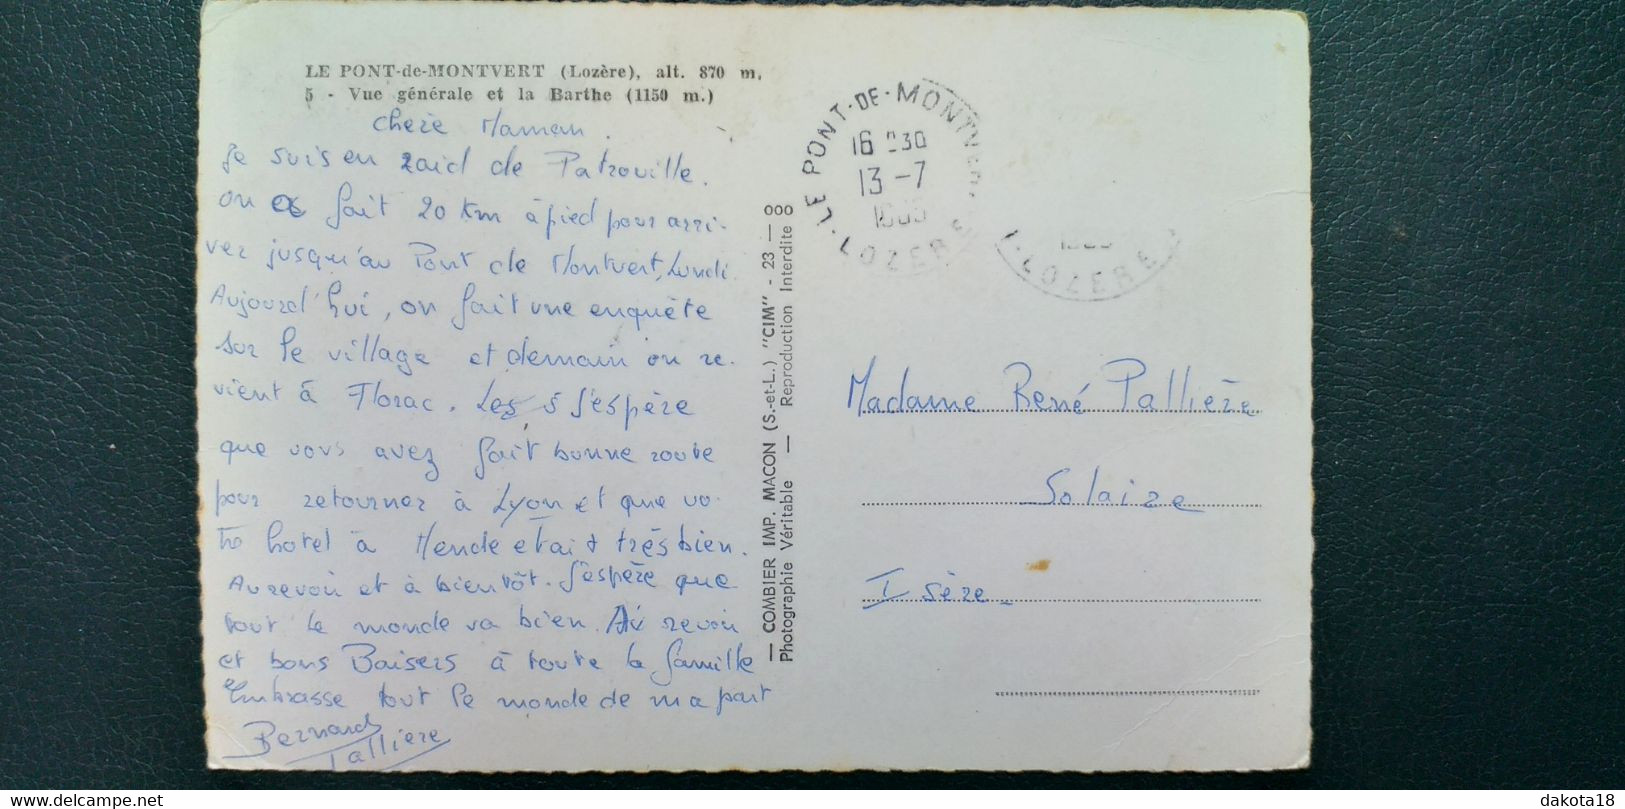 LE PONT-de-MONTVERT (Lozère), alt. 870 m.
5 - Vue générale et la Barthe (1150 m.)
chere Maman.
Je suis en raid de Patrouille.
on a fait 20 Km à pied pour arri-
ver jusqu'au Pont de Montvert, Lundi
Aujourd'hui, on fait une enquête
sur le village et demain on re-
vient à Florac. Les J'espère
que vous avez fait bonne route
pour retourner à Lyon et que vo-
tre hotel à Mende etait très bien.
Au revoir et à bientôt. J'espère que
tout le monde va bien. Au revoir
et bons Baisers à toute la famille
Embrasse tout le monde de ma part
Bernard
Pallière
— COMBIER IMP. MACON (S.-et-L.) "CIM" - 23 — 000
Photographie Véritable — Reproduction Interdite
LE PONT-DE-MONTVERT
16 30
13 -7
LOZERE
LOZERE
Madame René Pallière
Solaize
Isère
delcampe.net
dakota18